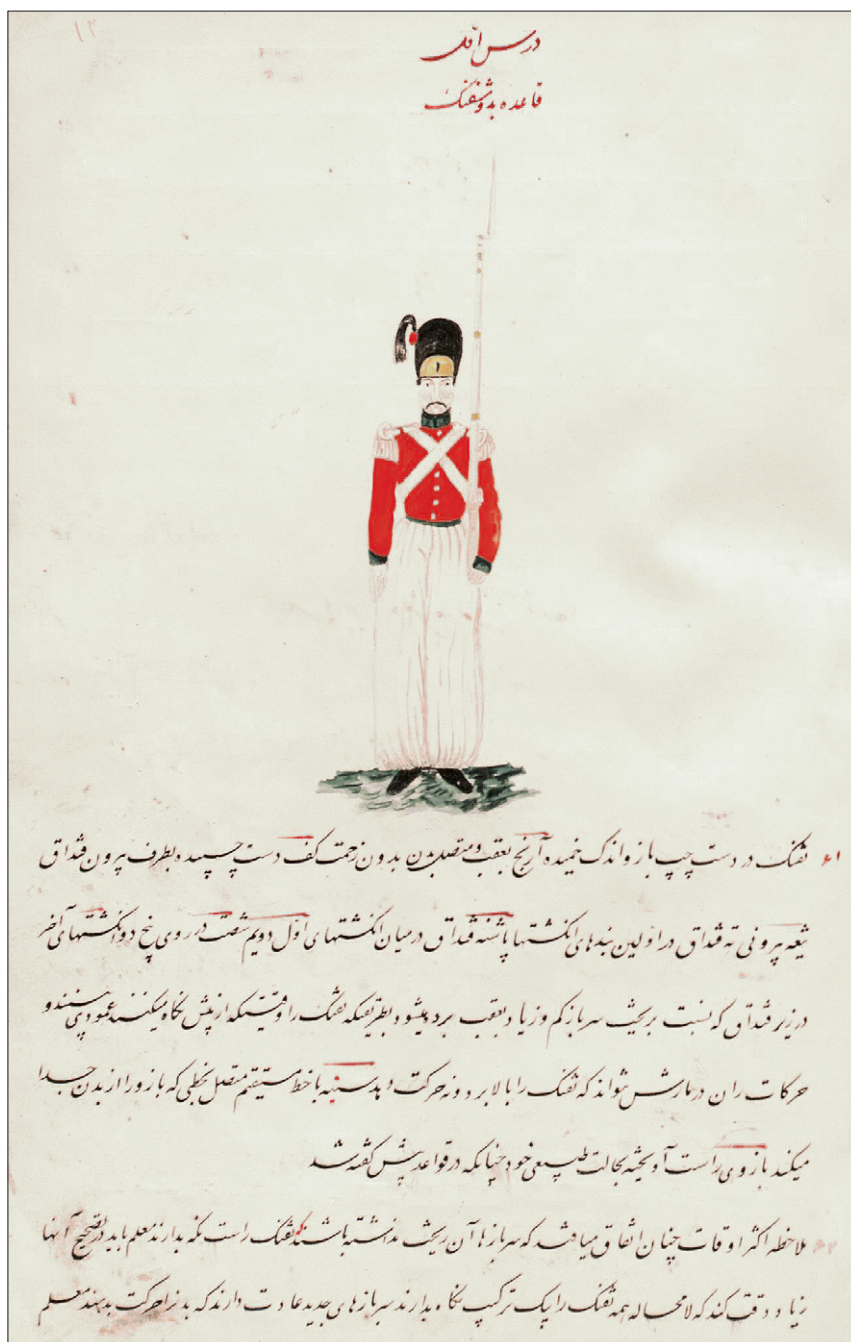 ۱۲
درس اول
قاعده بدوش تفنگ
۶۱ تفنگ در دست چپ بازو اندک خمیده آرنج بعقب و متصل ببدن بدون زحمت کف دست چسپیده بطرف بیرون قنداق
تیغه بیرونی ته قنداق در اولین بندهای انگشتها پاشنه قنداق در میان انگشتهای اول دویم شصت در روی پنج دو انگشتهای آخر
در زیر قنداق که نسبت بر یخت سرباز کم و زیاد بعقب برده میشود بطریقیکه تفنگ را وقتیکه از پیش نگاه میکنند عمودی بینند و
حرکات ران در مارش نتواند که تفنگ را بالا برد و نه حرکت دهد سینه با خط مستقیم متصل بخطی که بازو را از بدن جدا
میکند بازوی راست آویخته بحالت طبیعی خود چنانکه در قواعد پیش گفته شد
۶۲ ملاحظه اکثر اوقات چنان اتفاق میافتد که سربازها آن ریخت نداشته باشند که تفنگ راست نگه بدارند معلم باید در تصحیح آنها
زیاد دقت کند که لامحاله همه تفنگ را یک ترکیب نگاه بدارند سربازهای جدید عادت دارند که بدنرا حرکت بدهند معلم